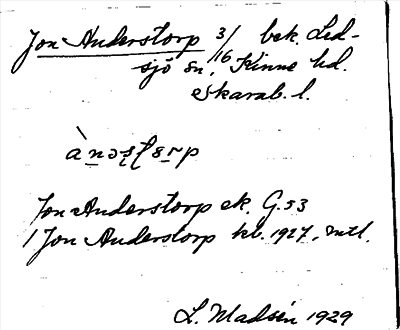 Jon Anderstorp 3/16 bek. Led-
sjö sn, Kinne hd.
Skarab. l.
Jon Anderstorp ek. G.53
/ Jon Anderstorp hb. 1927, mtl.
L. Madsén 1929